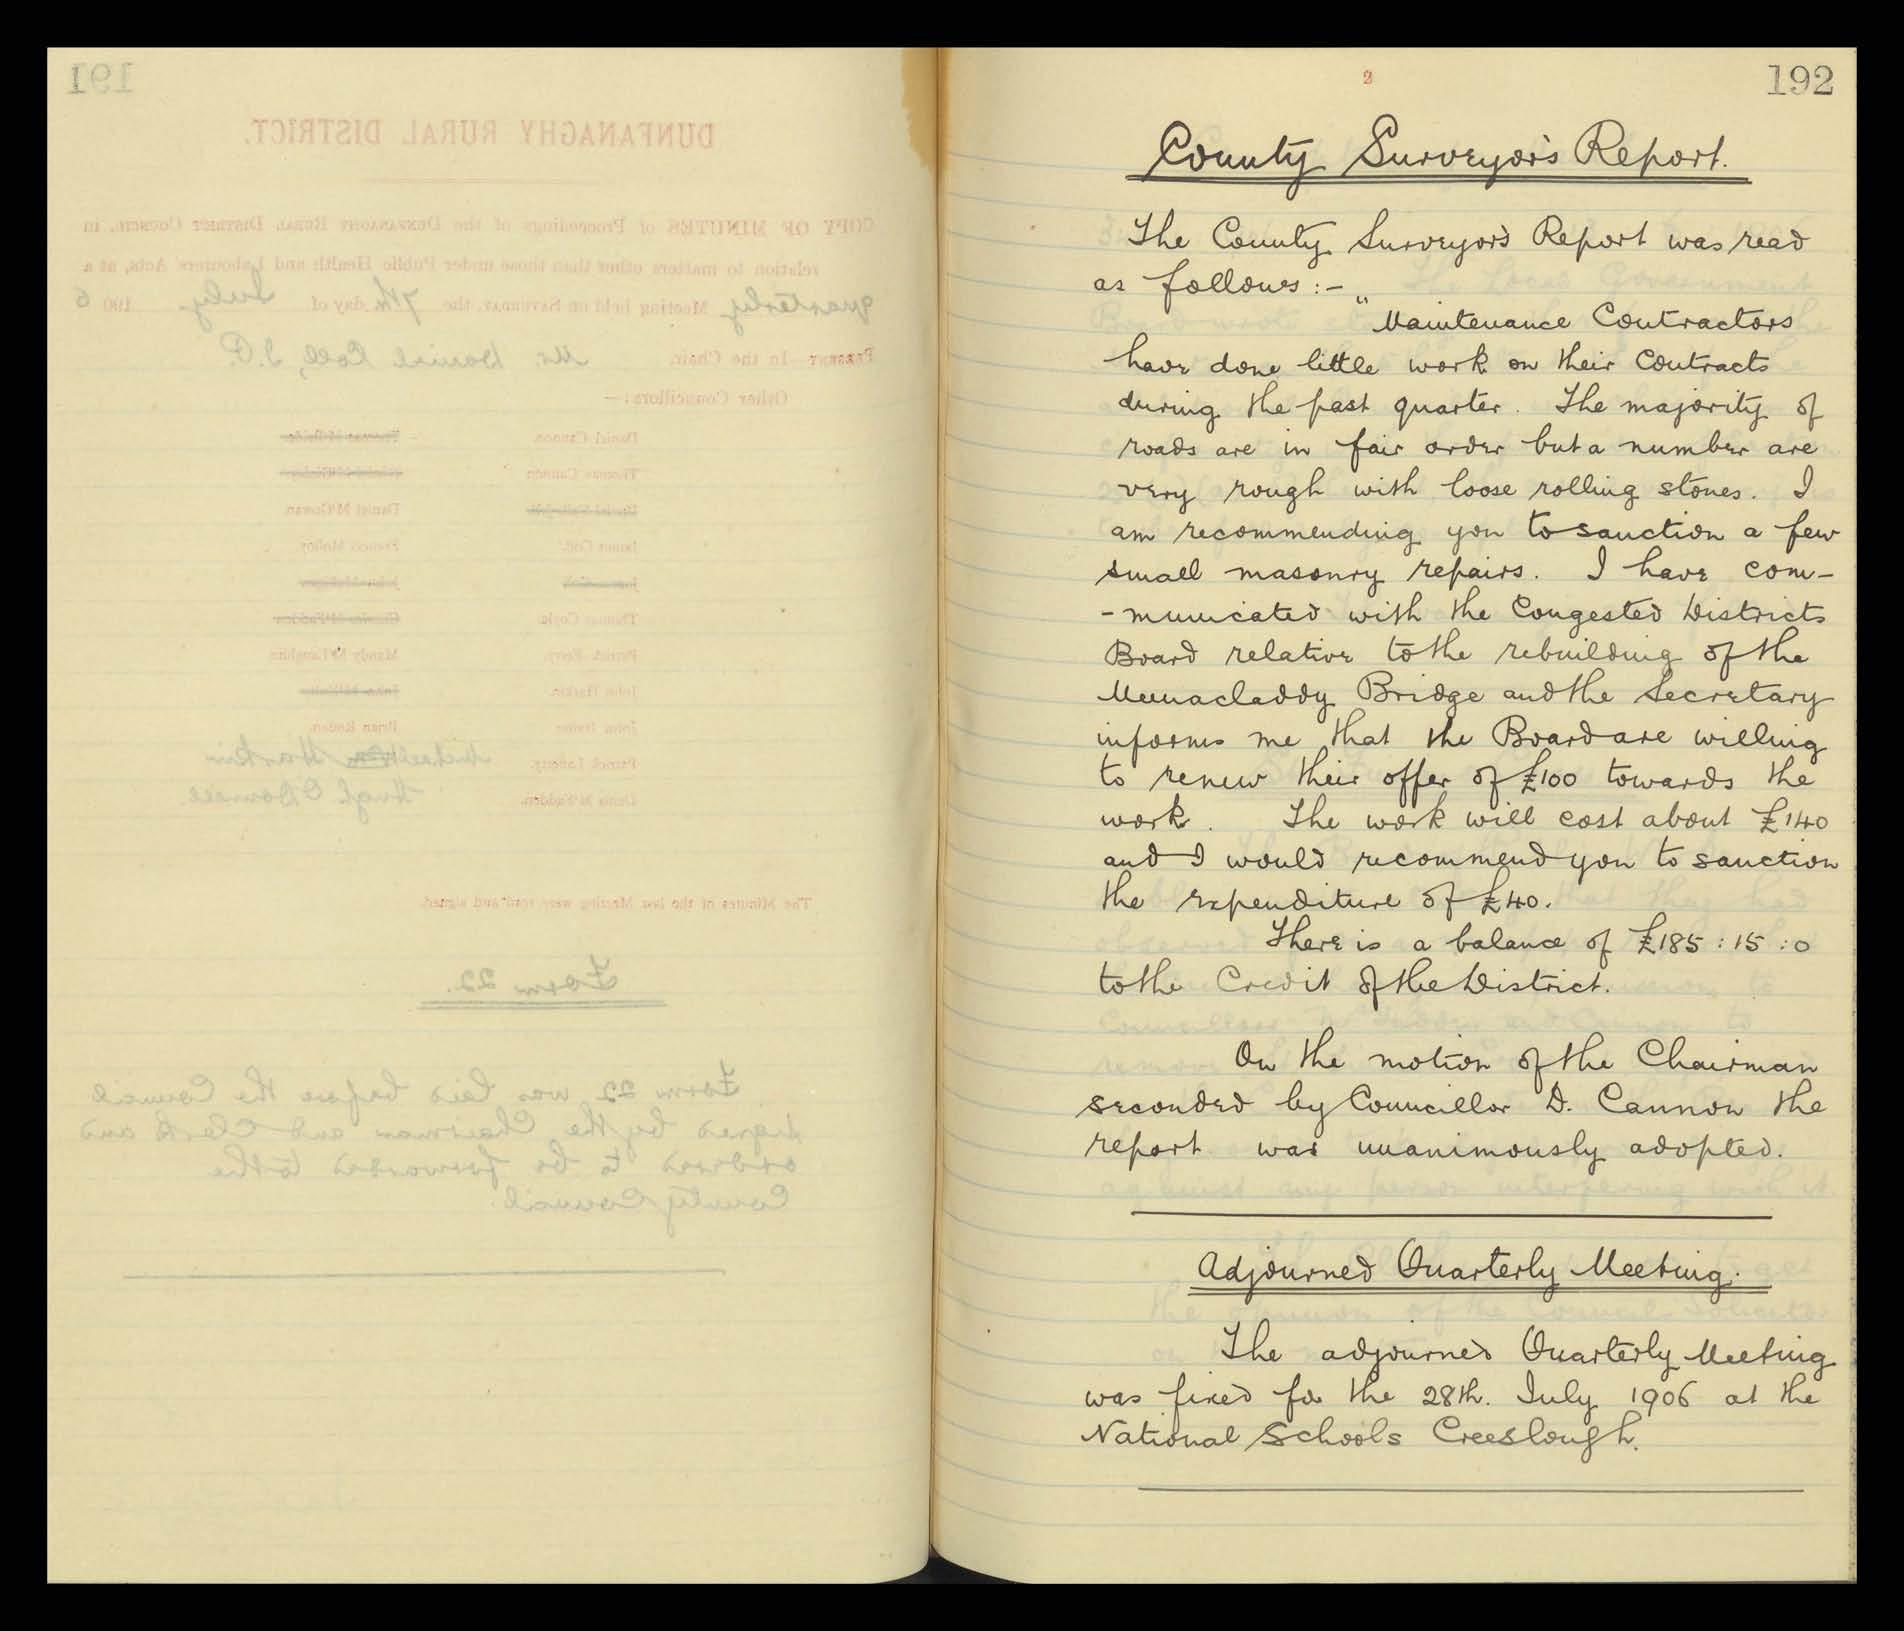 191
DUNFANAGHY RURAL DISTRICT.
COPY OF MINUTES of Proceedings of the DUNFANAGHY RURAL DISTRICT COUNCIL, in
relation to matters other than those under Public Health and Labourers' Acts, at a
quarterly Meeting held on SATURDAY, the 7th day of July 1906
PRESENT—In the Chair, Mr. Daniel Coll, J.P.
Other Councillors:—
Daniel Cannon.
Thomas Cannon
Daniel McGowan.
James Coll. Francis Molloy.
Thomas Coyle.
Patrick Ferry. Mandy McLaughlin
John Harkin.
Brian Roden.
Patrick Lafferty. Michael Harkin
Denis McFadden. Hugh O'Donnell
The Minutes of the last Meeting were read and signed.
Form 22.
Form 22 was laid before the Council
signed by the Chairman and Clerk and
ordered to be forwarded to the
County Council.
2
192
County Surveyor's Report.
The County Surveyor's Report was read
as follows:-
"Maintenance Contractors
have done little work on their Contracts
during the past quarter. The majority of
roads are in fair order but a number are
very rough with loose rolling stones. I
am recommending you to sanction a few
small masonry repairs. I have com-
-municated with the Congested Districts
Board relative to the rebuilding of the
Meenacladdy Bridge and the Secretary
informs me that the Board are willing
to renew their offer of £100 towards the
work. The work will cost about £140
and I would recommend you to sanction
the expenditure of £40.
There is a balance of £185:15:0
to the Credit of the District.
On the motion of the Chairman
seconded by Councillor D. Cannon the
report was unanimously adopted.
Adjourned Quarterly Meeting.
The adjourned Quarterly Meeting
was fixed for the 28th. July 1906 at the
National Schools Creeslough.